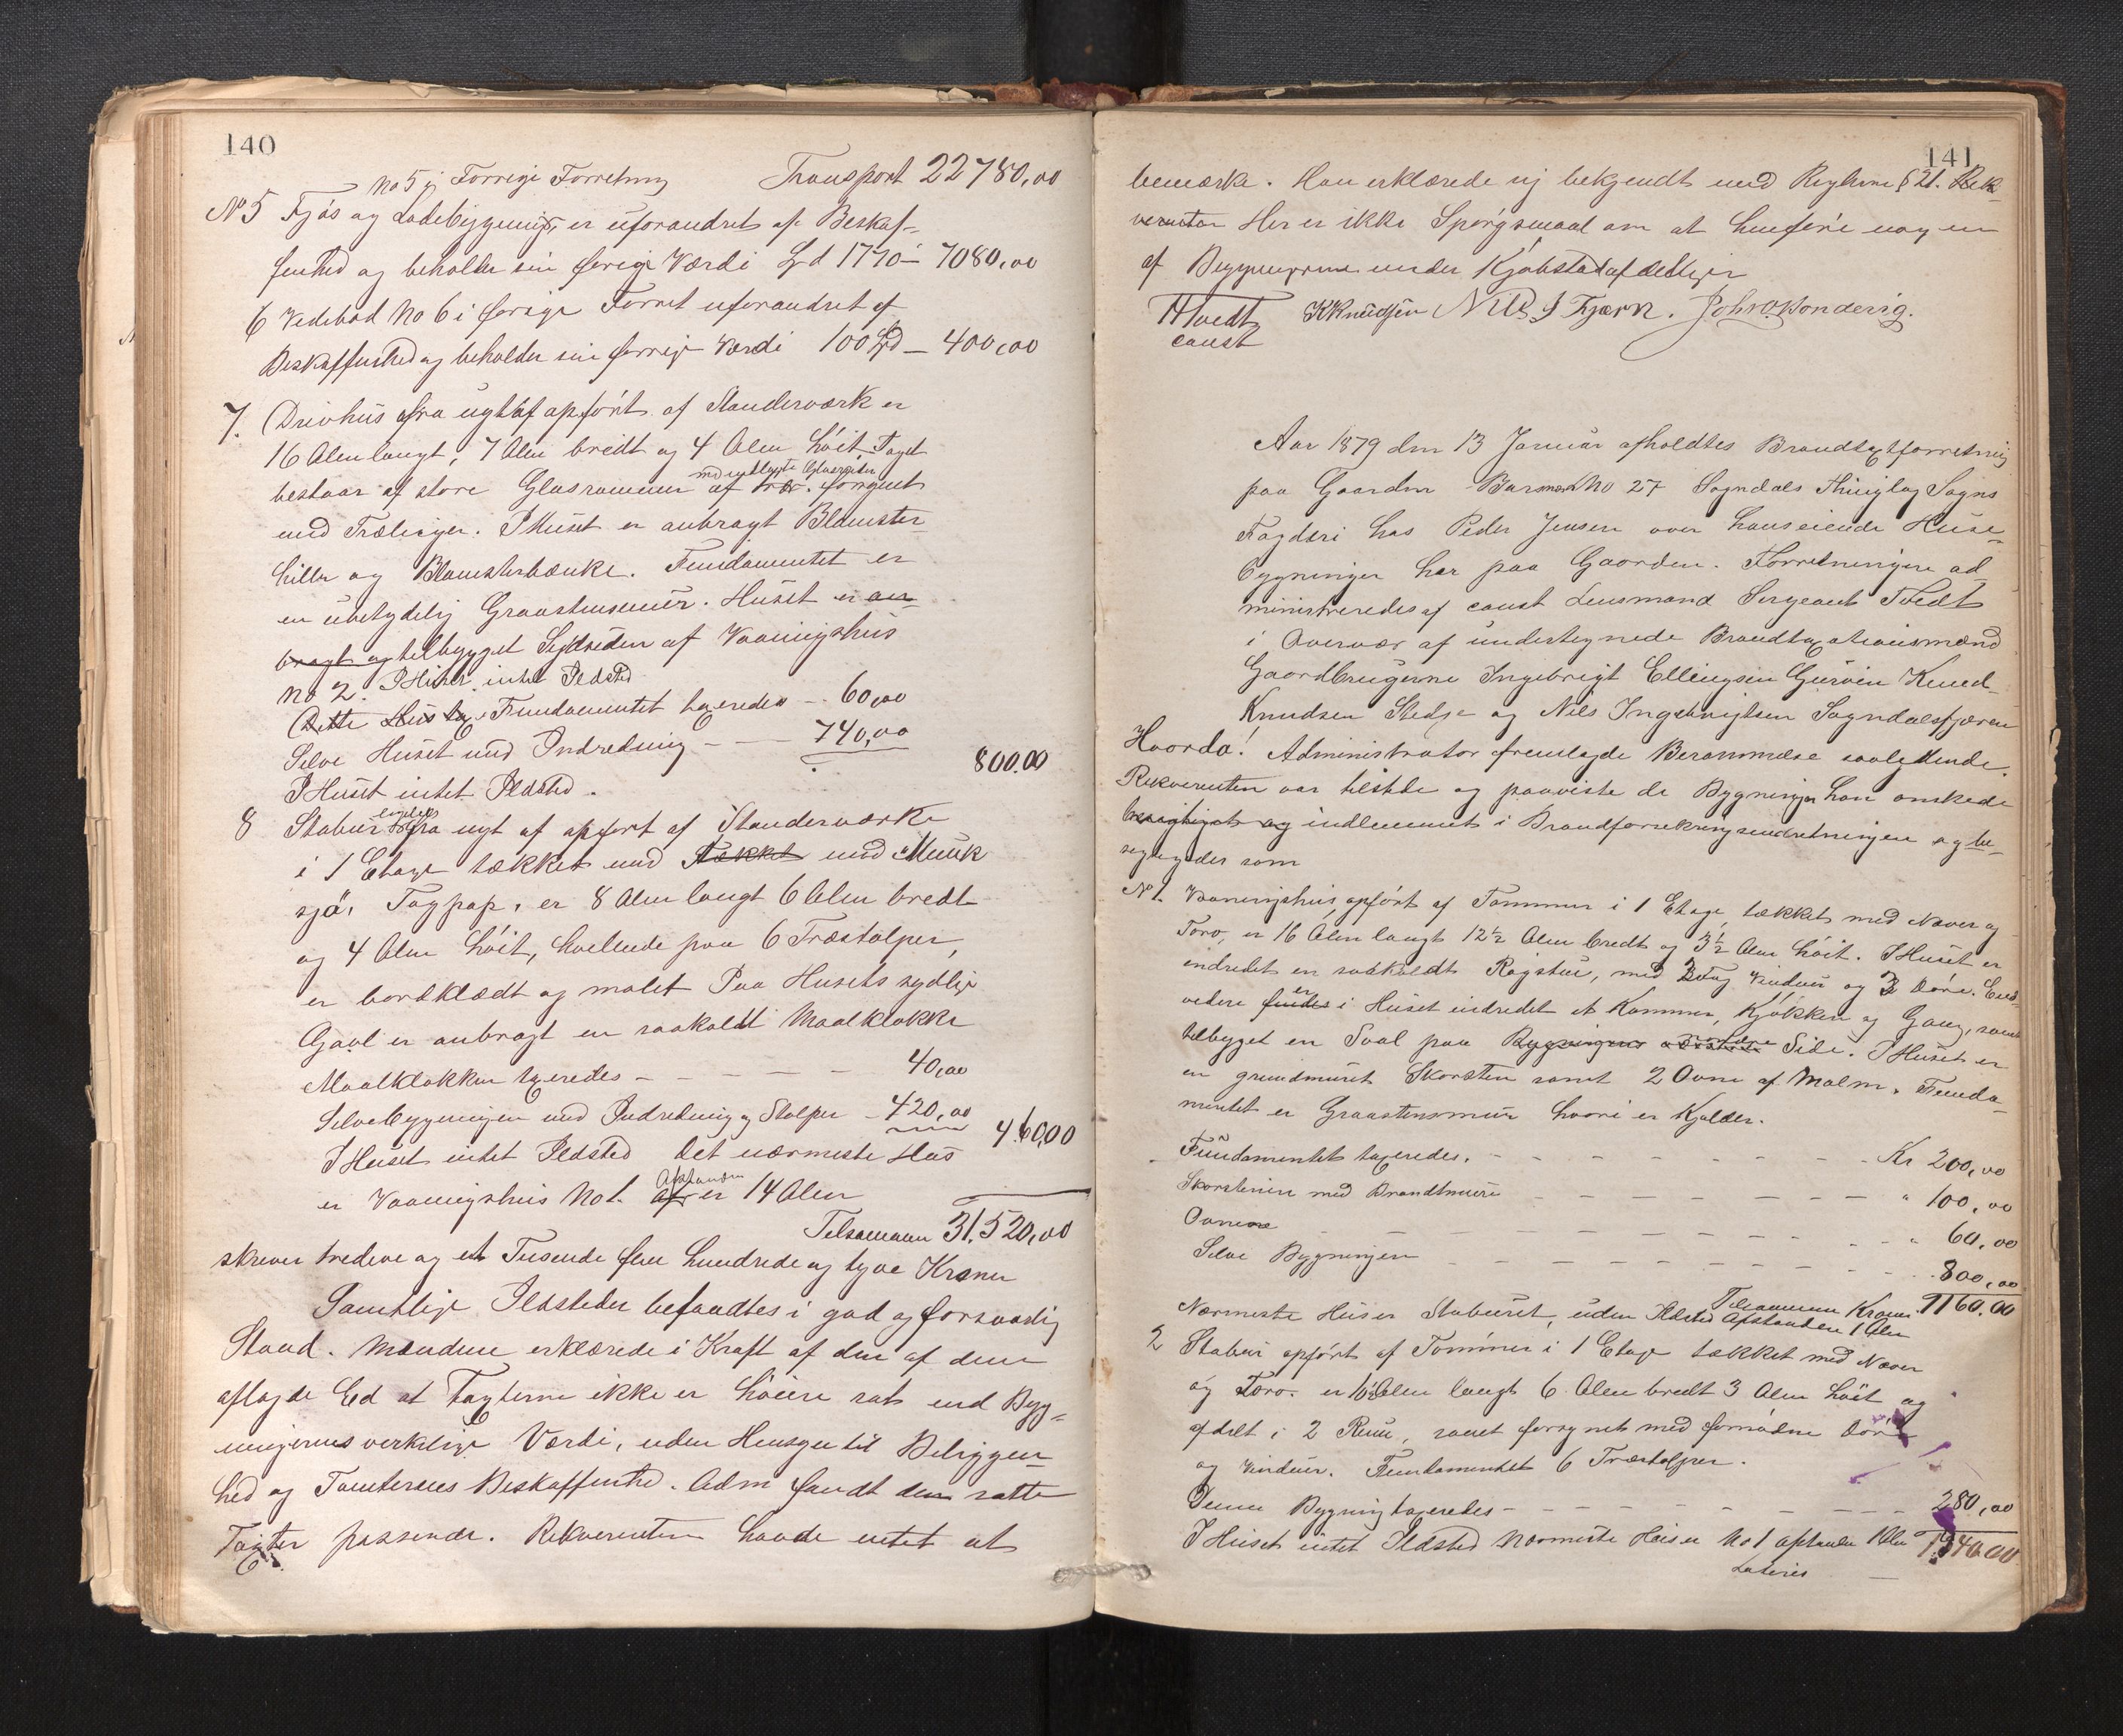 140
Transport 22780,00
No 5 i Forrige Forretning
No 5 Fjøs og Ladebygning, er uforandret af Beskaf-
fenhed og beholder sin forrige Værdi Spd 1770 - 7080,00
6 Vedebod No 6 i forrige Forret uforandret af
Beskaffenhed og beholder sin forrige Værdi 100 Spd - 400,00
7. Drivhus fra nyt af opført af Standerværk er
16 Alen langt, 7 Alen bredt og 4 Alen høit, Taget
bestaar af store Glasrammer af Træ. forsynet
med Trælister. I Huset er anbragt Blomster
hiller og Blomsterbænke. Fundamentet er
en ubetydelig Graastensmur. Huset er an-
bragt og tilbygget Sydsiden af Vaaningshus
No 2. I Huset intet Ildsted
Dette Hus Fundamentet taxeredes - 60,00
Selve Huset med Indredning - 740,00
800.00
I Huset intet Ildsted.
8 Stabur fra nyt af opført af Standerværk
i 1 Etage tækket med Tækket med Munk
sjø. Tagpap, er 8 Alen langt 6 Alen bredt
og 4 Alen høit, hvilende paa 6 Træstolper,
er bordklædt og malet Paa Husets sydlige
Gavl er anbragt en saakaldt Maalklokke
Maalklokken taxeredes - 40,00
Selve bygningen med Indredning og Stolper - 420,00
460,00
I Huset intet Ildsted Det nærmeste Hus
er Vaaningshus No 1. Afstanden er 14 Alen
Tilsammen 31.520,00
skriver tredive og et Tusende fem hundrede og tyve Kroner
Samtlige Ildsteder befandtes i god og forsvarlig
Stand. Mændene erklærede i Kraft af den af dem
aflagde Ed at Taxterne ikke er høiere sat end Byg-
ningernes verkelige Værdi, uden Hensyn til Beliggen-
hed og Tomternes Beskaffenhed. Adm fandt den satte
Taxter passende. Rekverenten havde intet at
141
bemærke. Han erklærede sig bekjendt med Reglerne § 21. Rek-
verenten Her er ikke Spørgsmaal om at henføre nogen
af Bygningerne under Kjøbstadafdelingen
H Tvedt KKnudsen Nils I Fjærn. John O. Sonderig.
const
Aar 1879 den 13 Januar afholdtes Brandtaxtforretning
paa Gaarden No 27 Sogndals Thinglag Sogns
Fogderi hos Peder Jensen over hans eiende Huse-
bygninger her paa Gaarden. Forretningen ad-
ministreredes af const Lensmand Sergeant Tvedt
i Overvær af undertegnede Brandtaxationsmænd
Gaardbrugerne Ingebrigt Ellingsen Gurvin Knud
Knudsen Stedje og Nils Ingebrigtsen Sogndalsfjæren
Hvorda! Administrator fremlagde Berammelse saalydende.
Rekverenten var tilstede og paaviste de Bygninger han ønskede
besigtiget og indlemmet i Brandforsikringsindretningen og be-
sigtigedes som
No 1. Vaaningshus, opført af Tømmer i 1 Etage, tækket med Næver og
Torv, er 16 Alen langt 12½ Alen bredt og 3½ Alen høit. I Huset er
indredet en saakaldt Røgstue, med 2 Fag Vinduer og 3 Døre. End-
videre findes er i Huset indredet et Kammer, Kjøkken og Gang, samt
tilbygget en Sval paa Bygningens Side. I Huset er
en grundmuret Skorsten samt 2 Ovne af Malm. Funda-
mentet er Graastensmur hvori er Kjelder.
Fundamentet taxeredes. - Kr 200,00
Skorstenen med Brandtmure - " 100,00
Ovnene - " 60,00
Selve Bygningen - 800,00
Tilsammen Kroner 1160.00
Nærmeste Hus er Staburet, uden Ildsted Afstanden 1 Alen
2 Stabur opført af Tømmer i 1 Etage tækket med Næver
og Torv. er 10 Alen langt 6 Alen bredt 3 Alen høit og
afdelt i 2 Rum, samt forsynet med fornødne Døre
og Vinduer. Fundamentet 6 Træstolper.
Denne Bygning taxeredes - 280,00
I Huset intet Ildsted Nærmeste Hus er No 1 afstanden 1 Alen
Lateris